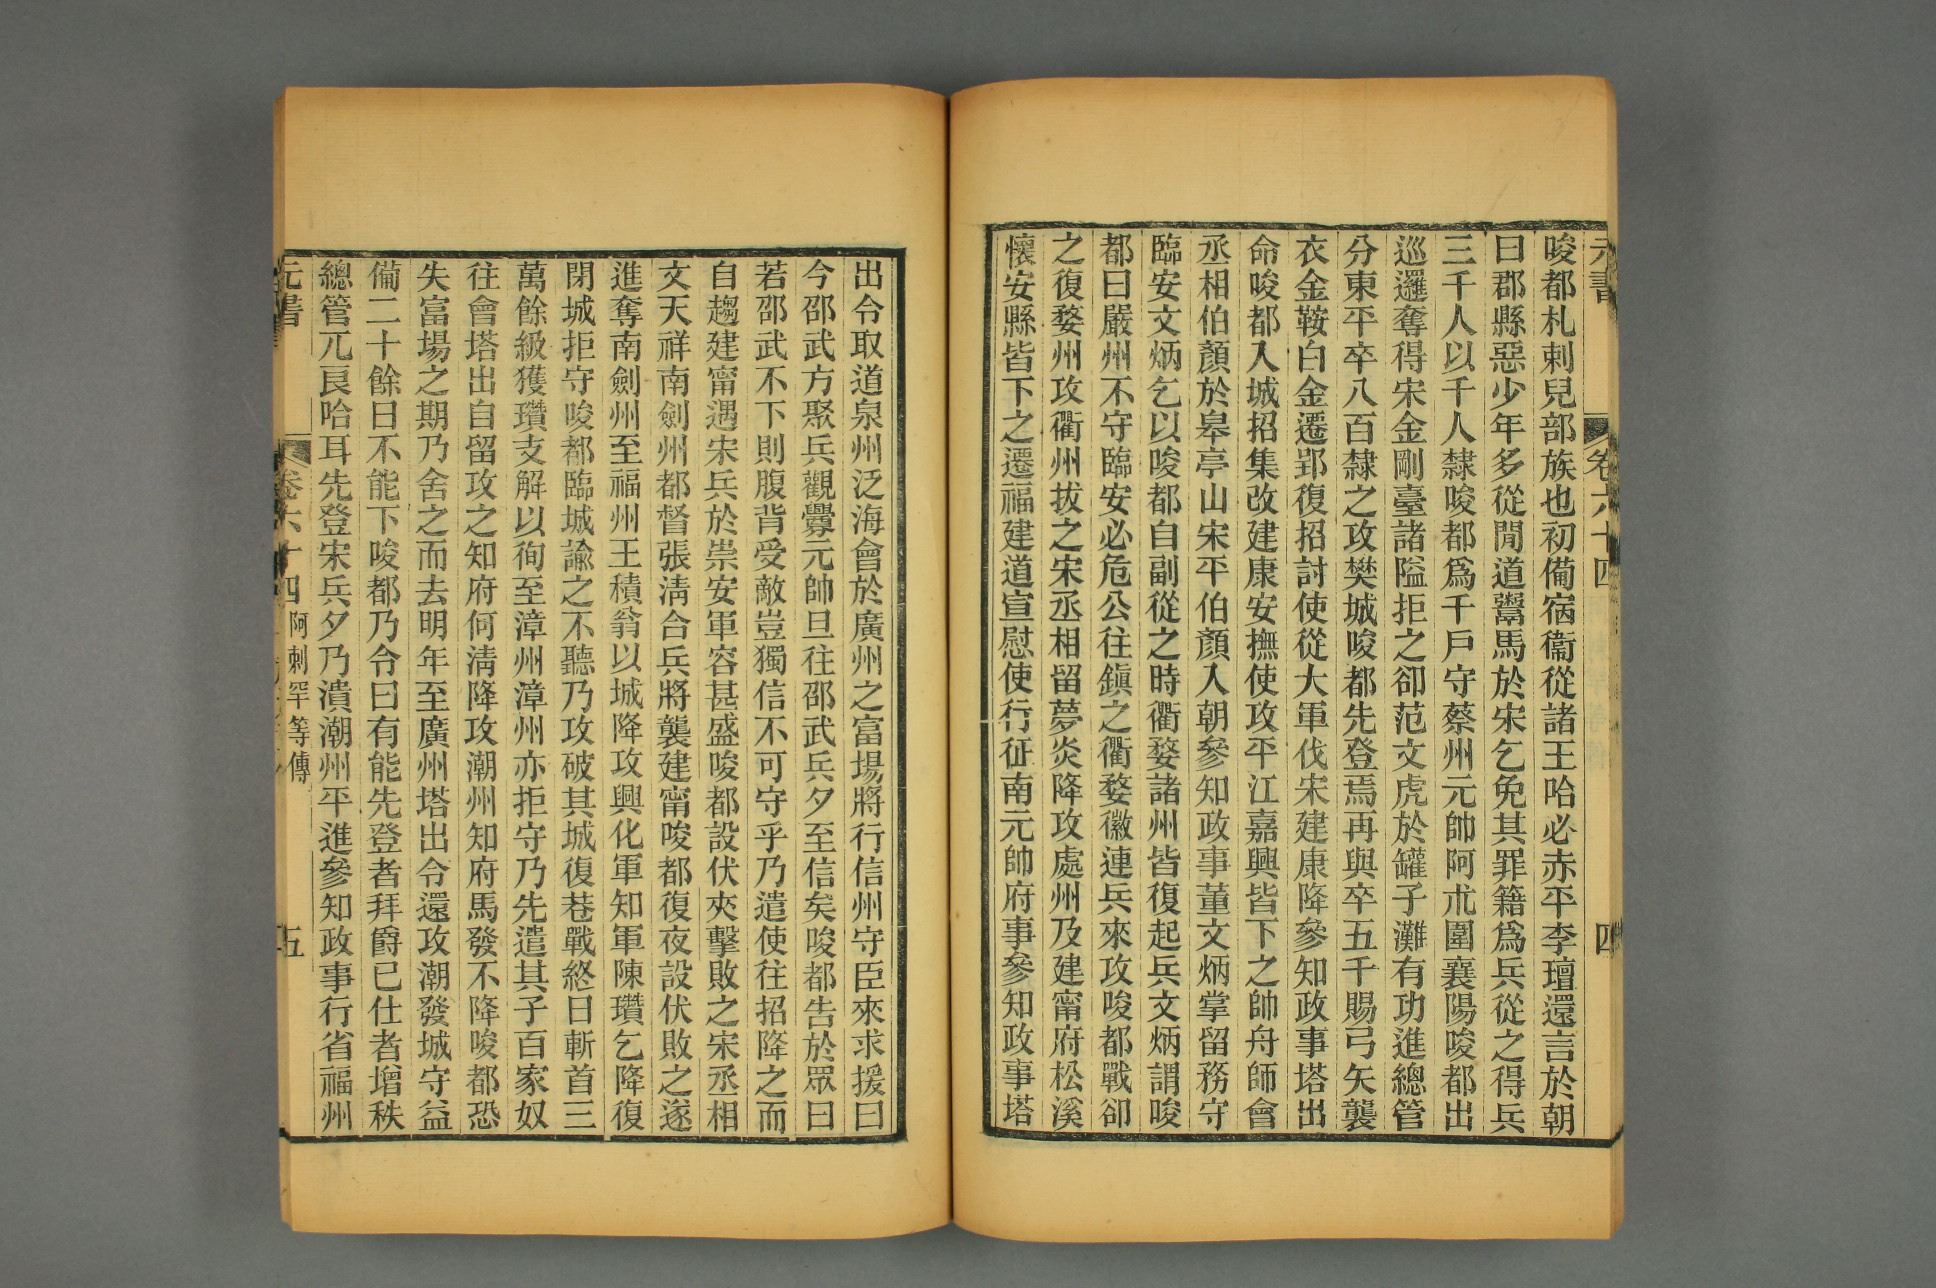 元書 卷六十四 四
唆都札剌兒部族也初備宿衞從諸王哈必赤平李璮還言於朝
曰郡縣惡少年多從閒道鬻馬於宋乞免其罪籍爲兵從之得兵
三千人以千人隸唆都爲千戶守蔡州元帥阿朮圍襄陽唆都出
巡邏奪得宋金剛臺諸隘拒之卻范文虎於罐子灘有功進總管
分東平卒八百隸之攻樊城唆都先登焉再與卒五千賜弓矢襲
衣金鞍白金遷郢復招討使從大軍伐宋建康降參知政事塔出
命唆都入城招集改建康安撫使攻平江嘉興皆下之帥舟師會
丞相伯顏於皋亭山宋平伯顏入朝參知政事董文炳掌留務守
臨安文炳乞以唆都自副從之時衢婺諸州皆復起兵文炳謂唆
都曰嚴州不守臨安必危公往鎭之衢婺徽連兵來攻唆都戰卻
之復婺州攻衢州拔之宋丞相留夢炎降攻處州及建甯府松溪
懷安縣皆下之遷福建道宣慰使行征南元帥府事參知政事塔
出令取道泉州泛海會於廣州之富場將行信州守臣來求援曰
今邵武方聚兵觀釁元帥旦往邵武兵夕至信矣唆都告於眾曰
若邵武不下則腹背受敵豈獨信不可守乎乃遣使往招降之而
自趨建甯遇宋兵於崇安軍容甚盛唆都設伏夾擊敗之宋丞相
文天祥南劍州都督張淸合兵將襲建甯唆都復夜設伏敗之遂
進奪南劍州至福州王積翁以城降攻興化軍知軍陳瓚乞降復
閉城拒守唆都臨城諭之不聽乃攻破其城復巷戰終日斬首三
萬餘級獲瓚支解以徇至漳州漳州亦拒守乃先遣其子百家奴
往會塔出自留攻之知府何淸降攻潮州知府馬發不降唆都恐
失富場之期乃舍之而去明年至廣州塔出令還攻潮發城守益
備二十餘日不能下唆都乃令曰有能先登者拜爵已仕者增秩
總管兀良哈耳先登宋兵夕乃潰潮州平進參知政事行省福州
元書 卷六十四 阿剌罕等傳 五